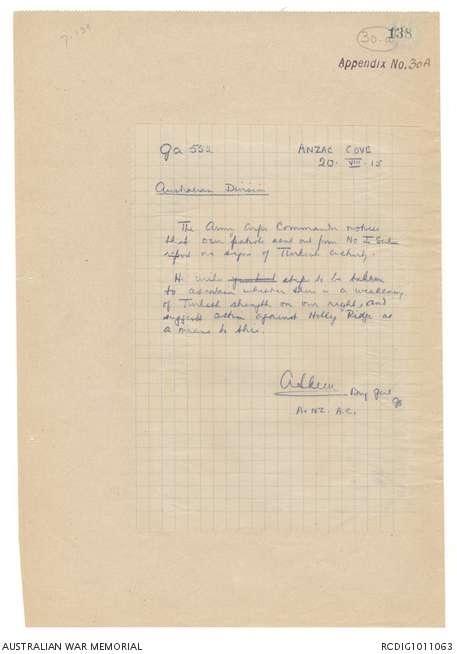 7.138
30.a
138
Appendix No. 30A
Ga 552
ANZAC COVE
20. VIII. 15
Australian Division
The Army Corps Commander notices
that our patrols sent out from No I Sect
report no signs of Turkish activity.
He wishes steps to be taken
to ascertain whether there is a weakening
of Turkish strength on our right, and
suggests action against Holly Ridge as
a means to this.
Brig Genl
GS
A. NZ. A.C.
AUSTRALIAN WAR MEMORIAL
RCDIG1011063